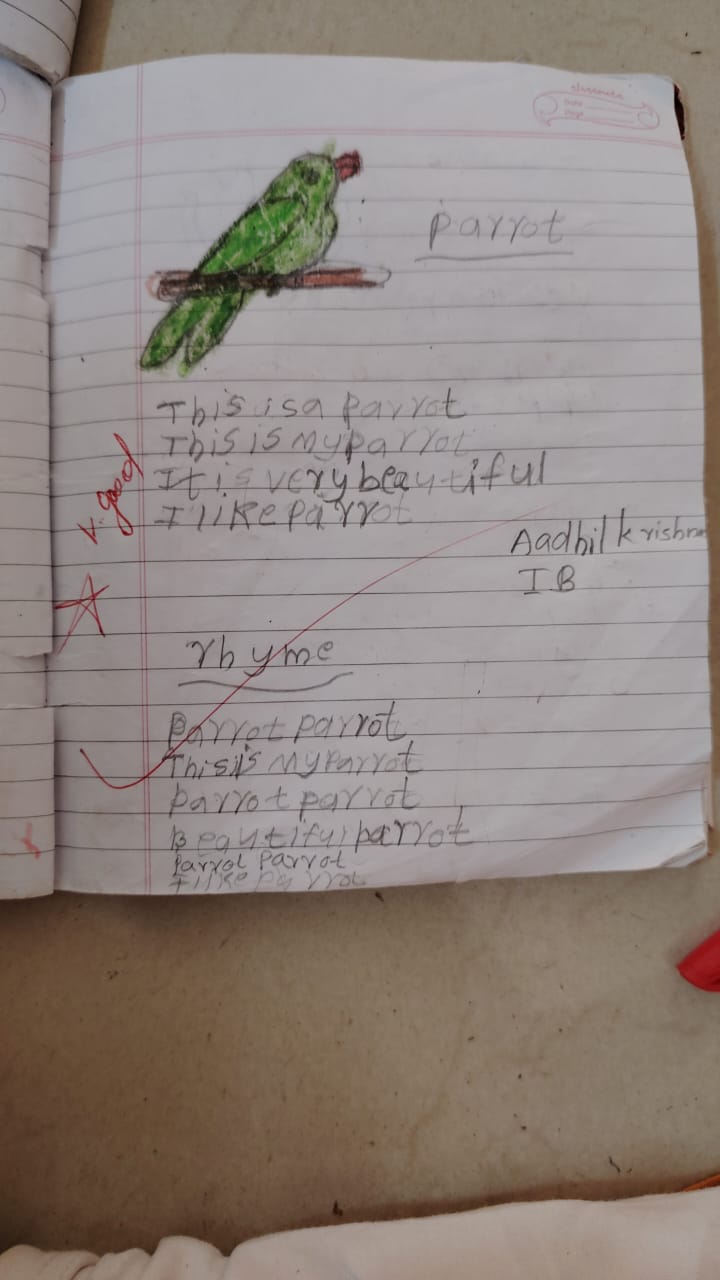 classmate
Date
Page
Parrot
This is a parrot
This is my parrot
It is very beautiful
I like parrot
V. good
Aadhil krishna
I B
rhyme
Parrot parrot
This is my parrot
parrot parrot
Beautiful parrot
Parrot Parrot
I like parrot